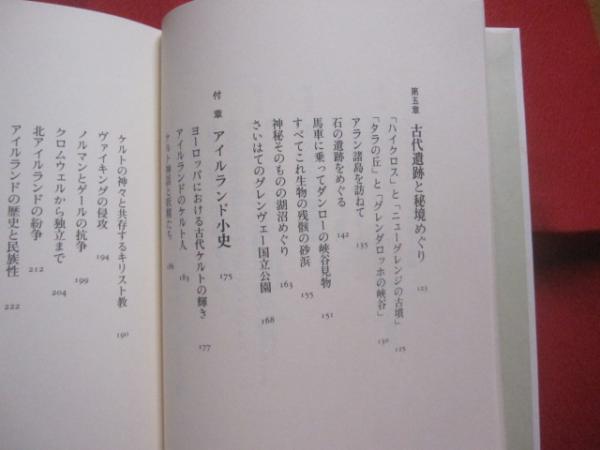 第五章 古代遺跡と秘境めぐり 123
「ハイクロス」と「ニューグレンジの古墳」 125
「タラの丘」と「グレンダロッホの峡谷」 130
アラン諸島を訪ねて 135
石の遺跡をめぐる 142
馬車に乗ってダンローの峡谷見物 151
すべてこれ生物の残骸の砂浜 155
神秘そのものの湖沼めぐり 163
さいはてのグレンヴェー国立公園 168
付章 アイルランド小史 175
ヨーロッパにおける古代ケルトの輝き 177
アイルランドのケルト人 183
ケルト神話と妖精たち 186
ケルトの神々と共存するキリスト教 190
ヴァイキングの侵攻 194
ノルマンとゲールの抗争 199
クロムウェルから独立まで 204
北アイルランドの紛争 212
アイルランドの歴史と民族性 222